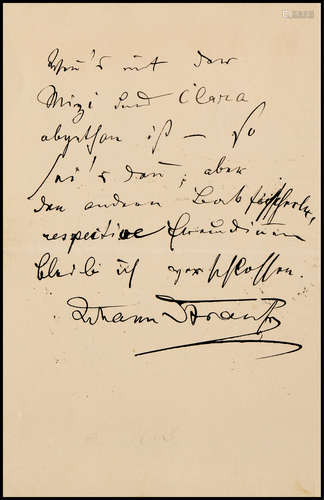 Wenn's mit der
Mizi und Clara
abgethan ist – so
sei's denn, aber
den andern Backfischerln,
respective Freundinen
bleib ich verschlossen.
Johann Strauss